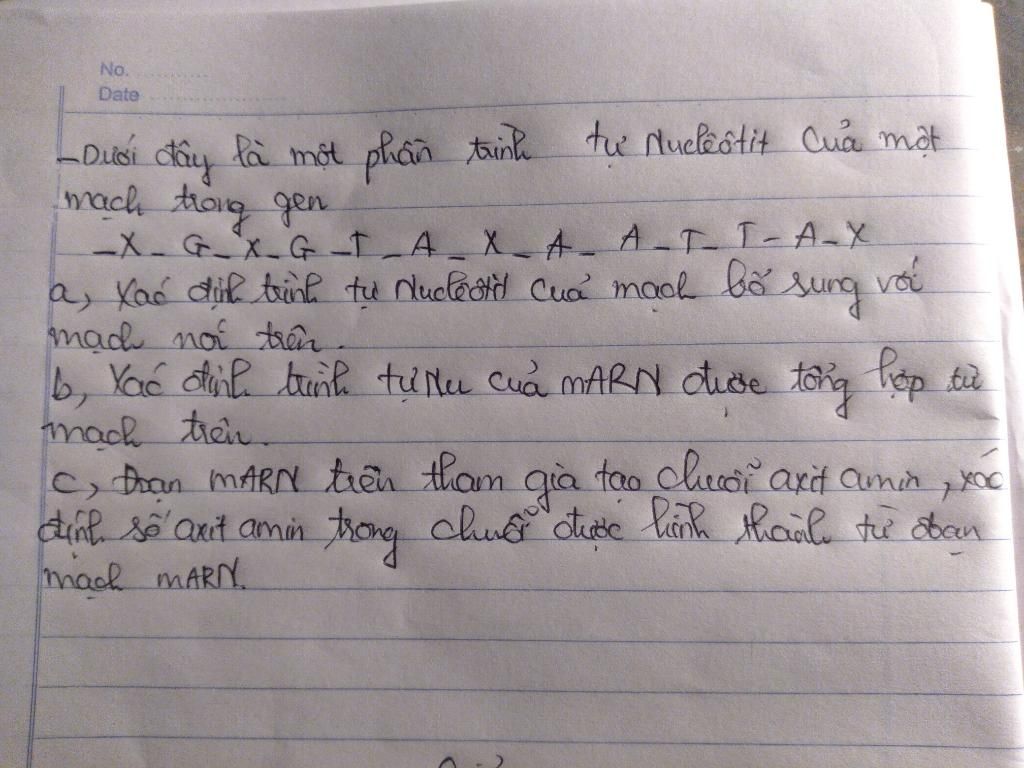 No.
Date
- Dưới đây là một phần trình tự Nuclêôtit của một
mạch trong gen
- X - G - X - G - T - A - X - A - A - T - T - A - X
a, Xác định trình tự Nuclêôtit của mạch bổ sung với
mạch nói trên.
b, Xác định trình tự Nu của mARN được tổng hợp từ
mạch trên.
c, Đoạn mARN trên tham gia tạo chuỗi axit amin, xác
định số axit amin trong chuỗi được hình thành từ đoạn
mạch mARN.